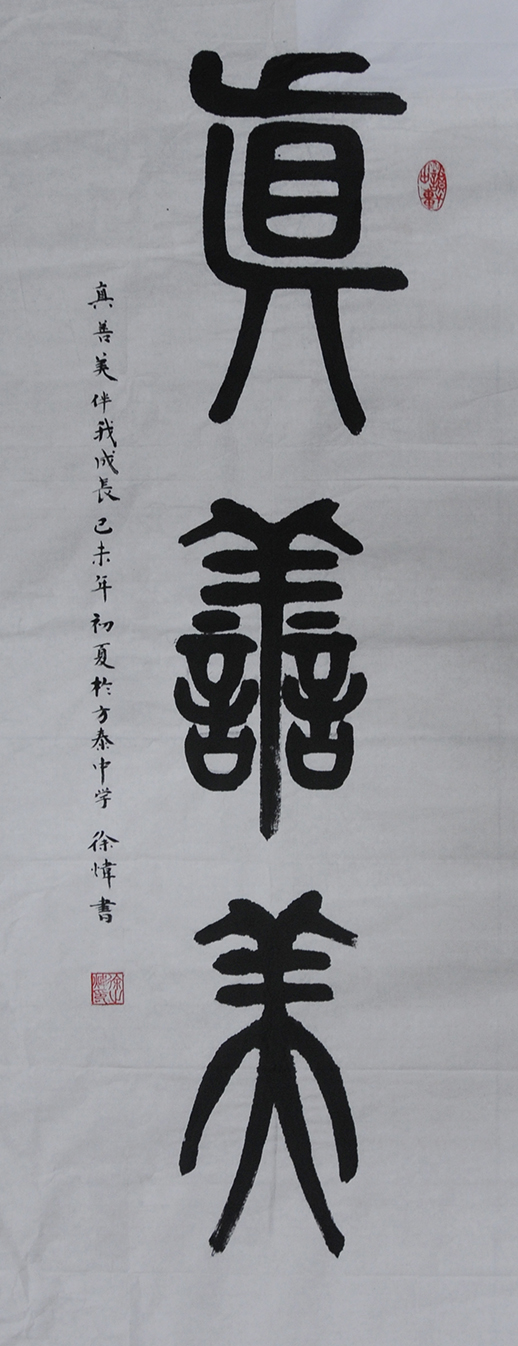 眞譱美
真善美伴我成長己未年初夏於方泰中学 徐煒書